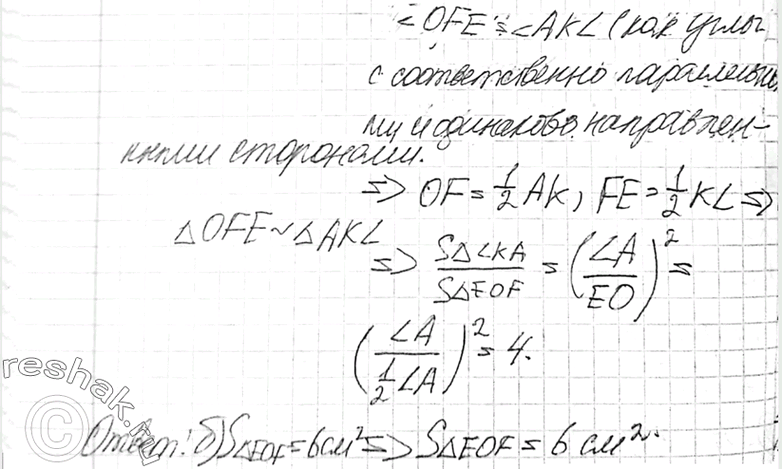 ∠OFE = ∠AKL (как углы
с соответственно параллельны
ми и одинаково направлен-
ными сторонами.
=> OF = 1/2 AK, FE = 1/2 KL =>
△OFE ~ △AKL
=> S△LKA / S△EOF = (LA / EO)² =
(LA / 1/2 LA)² = 4.
reshak.ru
Ответ: б) S△EOF = 6 см² => S△EOF = 6 см².